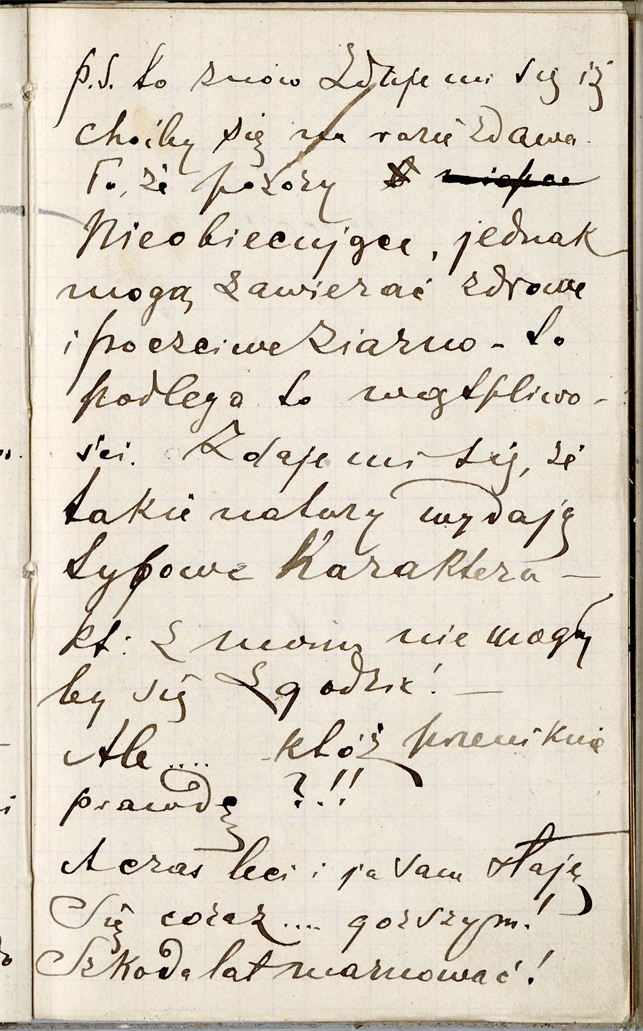 p.s. to znów Zdaje mi się iż
choćby się na razie zdawa.
To, że pozory
Nieobiecujące, jednak
mogą zawierać zdrowe
i poczciwe ziarno - to
podlega to wątpliwo-
ści. Zdaje mi się, że
takie natury wydają
typowe Karaktera —
kt: z moim nie mogły
by się Zgodzić! —
Ale .... któż przeniknie
prawdę ?!!
A czas leci i ja sam staję
Się coraz .... gorszym!
Szkoda lat marnować!